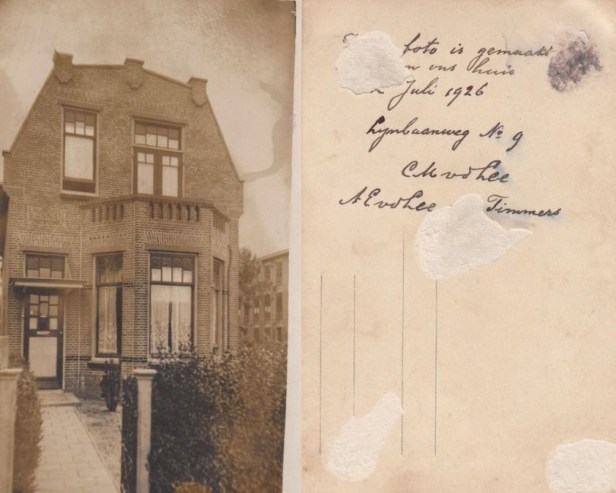 foto is gemaakt
n ons huis
Juli 1926
Lynbaanweg No 9
C M vd Lee
A E vd Lee Timmers